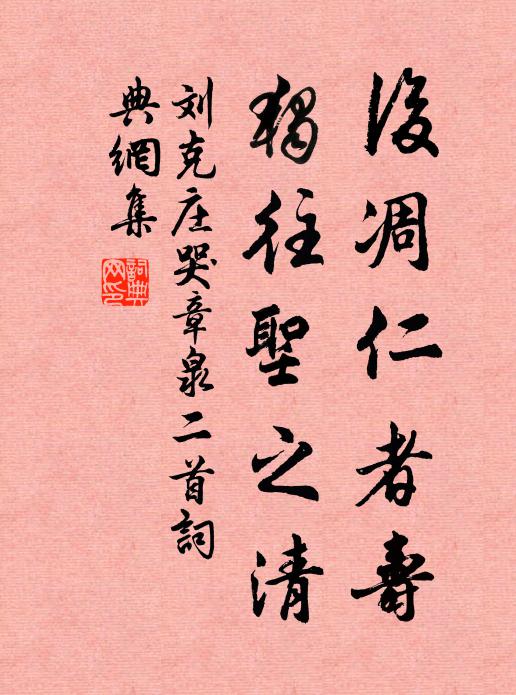 後凋仁者壽
獨往聖之清
刘克庄哭章泉二首詞
典網集
詞典網印